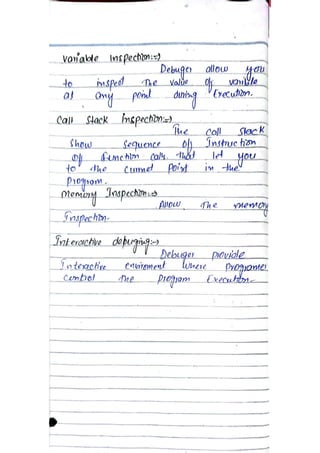 Variable Inspection:⇒
Debuger allow you
to inspect The value of variable
at any point during Execution.
Call Stack Inspection:⇒
The Call Stack
Show Sequence of Instruction
of function calls. that led you
to the current Point in the
Program.
Memory Inspection:⇒
Allow The memory
Inspection.
Interactive debuging:⇒
Debuger provide
Interactive enviroment where programer
Control The program Execution.